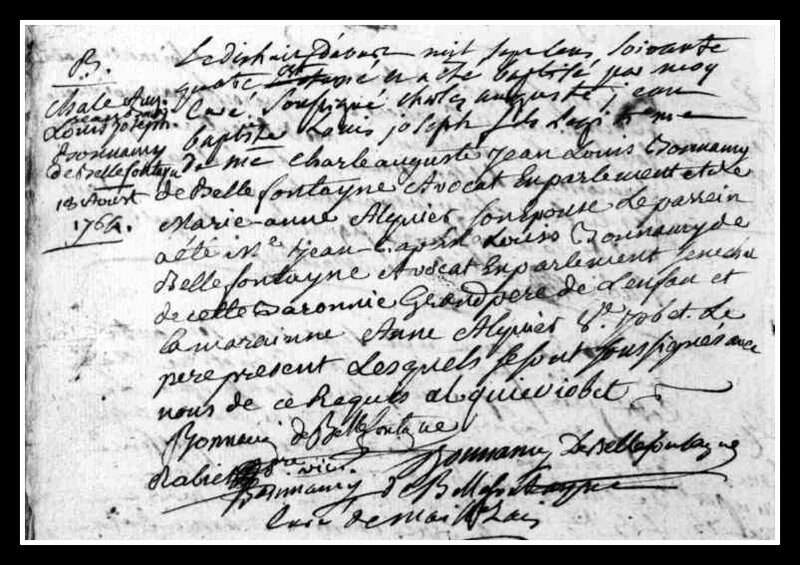 B.
Charle Aug.
Jean bap.
Louis Joseph
Bonnamy
de Bellefontayne
18 Aoust
1764.
Le dixhuit d'aoust mil sept cens soixante
quatre a eté baptisé par moy
Curé soussigné charles auguste jean
baptiste Louis joseph fils Legitime
De me Charle auguste jean Louis Bonnamy
de Bellefontayne Avocat En parlement et de
Marie-anne Alquier son epouse Le parrein
a été Me jean Louis Bonnamy de
Bellefontayne Avocat En parlement senechal
de cette Baronnie Grand pere de L'enfan et
La marainne Anne Alquier Ve jobet. Le
pere present Lesquels se sont soussignés avec
nous de ce Requis alquier jobet
Bonnamy de Bellefontayne
Rabier pre vic.
Bonnamy De Bellefontayne
Bonnamy de Bellefontayne
Curé de Maillezais